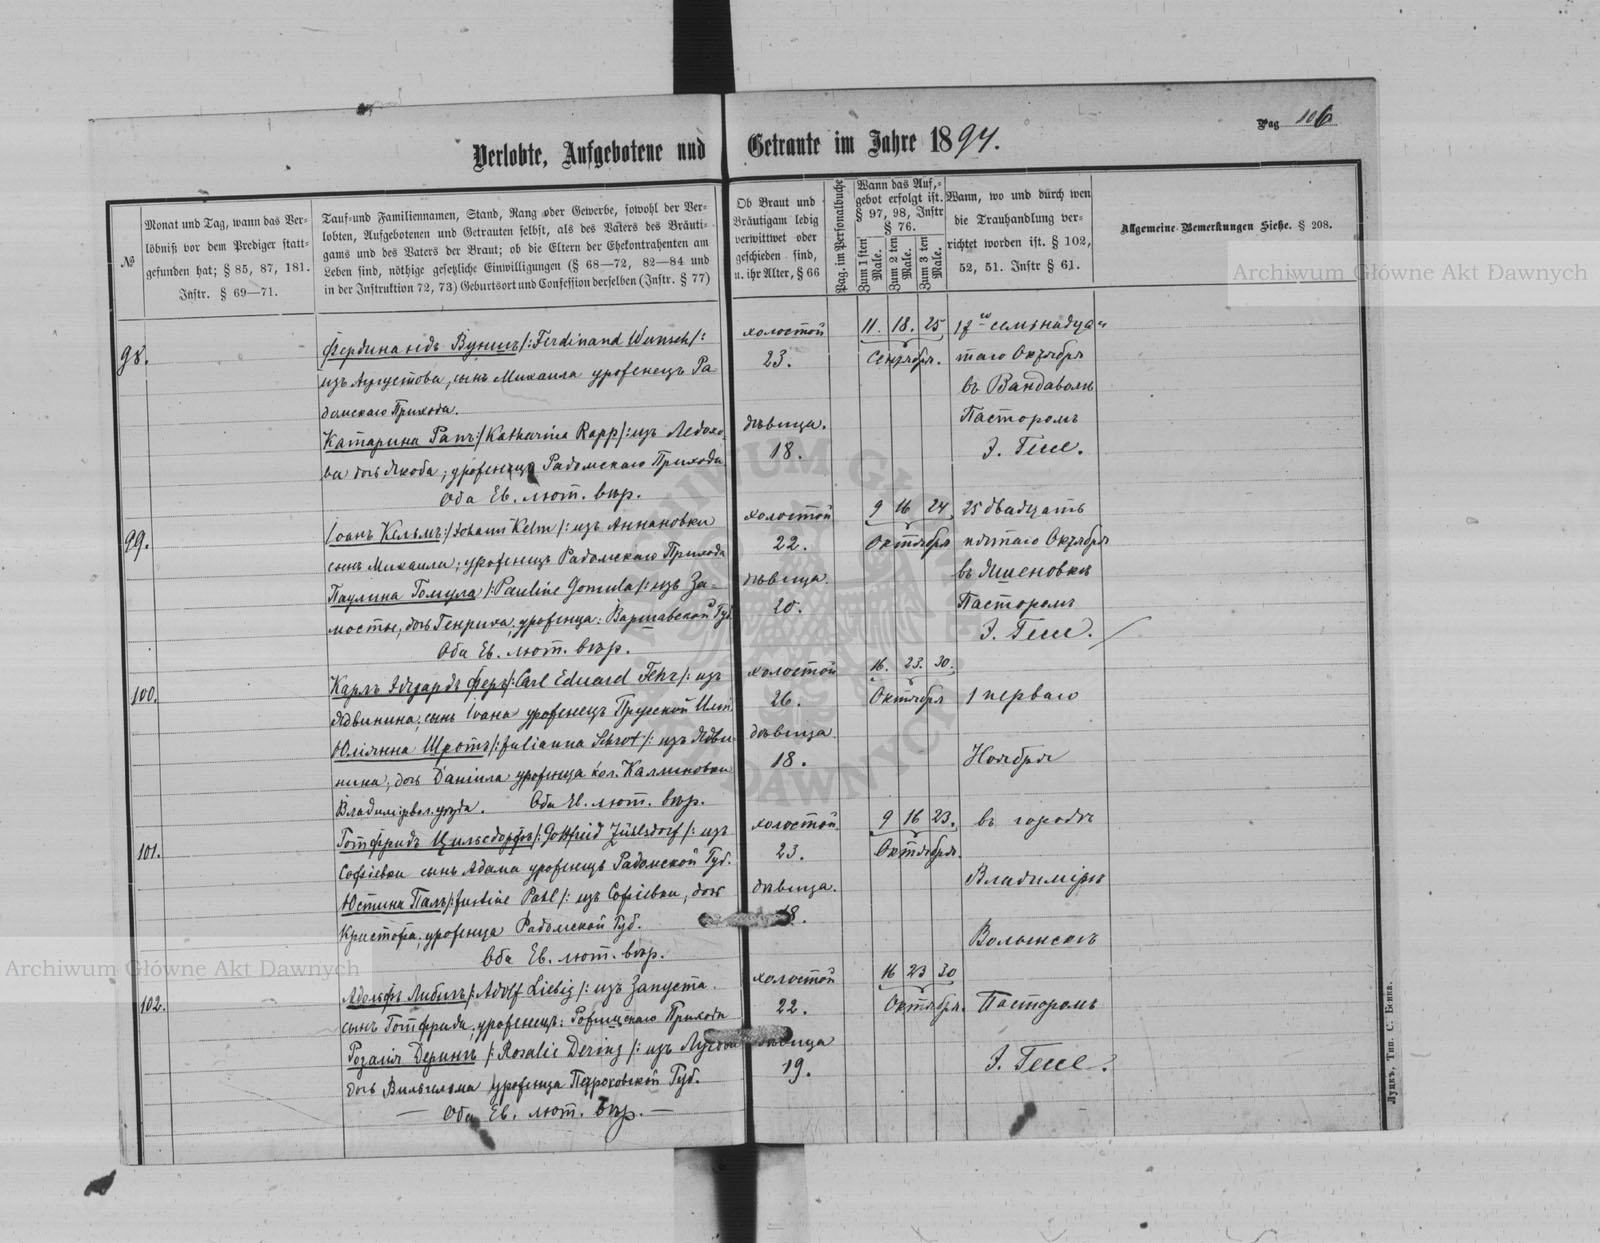 Pag 106
Verlobte, Aufgebotene und Getraute im Jahre 1894.
№
Monat und Tag, wann das Ver-
löbniß vor dem Prediger statt-
gefunden hat; § 85, 87, 181.
Instr. § 69—71.
Tauf-und Familiennamen, Stand, Rang oder Gewerbe, sowohl der Ver-
lobten, Aufgebotenen und Getrauten selbst, als des Vaters des Bräuti-
gams und des Vaters der Braut; ob die Eltern der Ehekontrahenten am
Leben sind, nöthige gesetzliche Einwilligungen (§ 68—72, 82—84 und
in der Instruktion 72, 73) Geburtsort und Confession derselben (Instr. § 77)
Ob Braut und
Bräutigam ledig
verwittwet oder
geschieden sind,
u. ihr Alter, § 66
Pag. im Personalbuche
Wann das Auf-
gebot erfolgt ist.
§ 97, 98, Instr
§ 76.
Zum 1 sten Male.
Zum 2 ten Male.
Zum 3 ten Male.
Wann, wo und durch wen
die Trauhandlung ver-
richtet worden ist. § 102,
52, 51. Instr § 61.
Allgemeine Bemerkungen Siehe. § 208.
98.
Фердинандъ Вуншъ /: Ferdinand Wunsch /:
изъ Аугустова, сынъ Михаила уроженецъ Ра
домскаго Прихода.
Катарина Рапъ /: Katharina Rapp /: изъ Ледохо-
ва дочь Якоба; уроженица Радомскаго Прихода
Оба Ев. лют. вѣр.
холостой
23.
дѣвица.
18.
11. 18. 25
Сентября.
17го семнадца-
таго Октября
въ Вандаволѣ
Пасторомъ
Э. Гессе.
99.
Іоанъ Кельмъ /: Johann Kelm /: изъ Аннановки
сынъ Михаила; уроженецъ Радомскаго Прихода
Паулина Гомула /: Pauline Gomula /: изъ За-
мостье, дочь Генриха, уроженца: Варшавской Губ.
Оба Ев. лют. вѣр.
холостой
22.
дѣвица.
20.
9 16 24
Октября
25 двадцать
пятаго Октября
въ Яшеновкѣ
Пасторомъ
Э. Гессе.
100.
Карлъ Эдуардъ Феръ /: Carl Eduard Fehr /: изъ
Ядвинина; сынъ Іоана уроженецъ Прусской Имп.
Юліянна Шротъ /: Julianna Schrot /: изъ Ядви-
нина; дочь Даніила уроженца кол. Каллиновки
Владимірвол. уѣзда. Оба Ев. лют. вѣр.
холостой
26.
дѣвица.
18.
16. 23. 30.
Октября
1 перваго
Ноября
101.
Готфридъ Цильсдорфъ /: Gottfried Zühlsdorf /: изъ
Софіевки сынъ Адама уроженецъ Радомской Губ.
Юстина Паль /: Justine Pahl /: изъ Софіевки, дочь
Кристофа, уроженца Радомской Губ.
Оба Ев. лют. вѣр.
холостой
23.
дѣвица.
18.
9 16 23.
Октября.
въ городѣ
Владимірѣ
Волынскѣ
102.
Адольфъ Либигъ /: Adolf Liebig /: изъ Запуста.
сынъ Готфрида, уроженецъ: Рожищскаго Прихода
Розалія Дерингъ /: Rosalie Dering /: изъ
дочь Вильгельма уроженца Петроковской Губ.
— Оба Ев. лют. вѣр. —
холостой
22.
дѣвица
19.
16 23 30
Октября.
Пасторомъ
Э. Гессе.
Луцкъ, Тип. С. Бенка.
Archiwum Główne Akt Dawnych
Archiwum Główne Akt Dawnych
ARCHIWUM GŁÓWNE AKT DAWNYCH